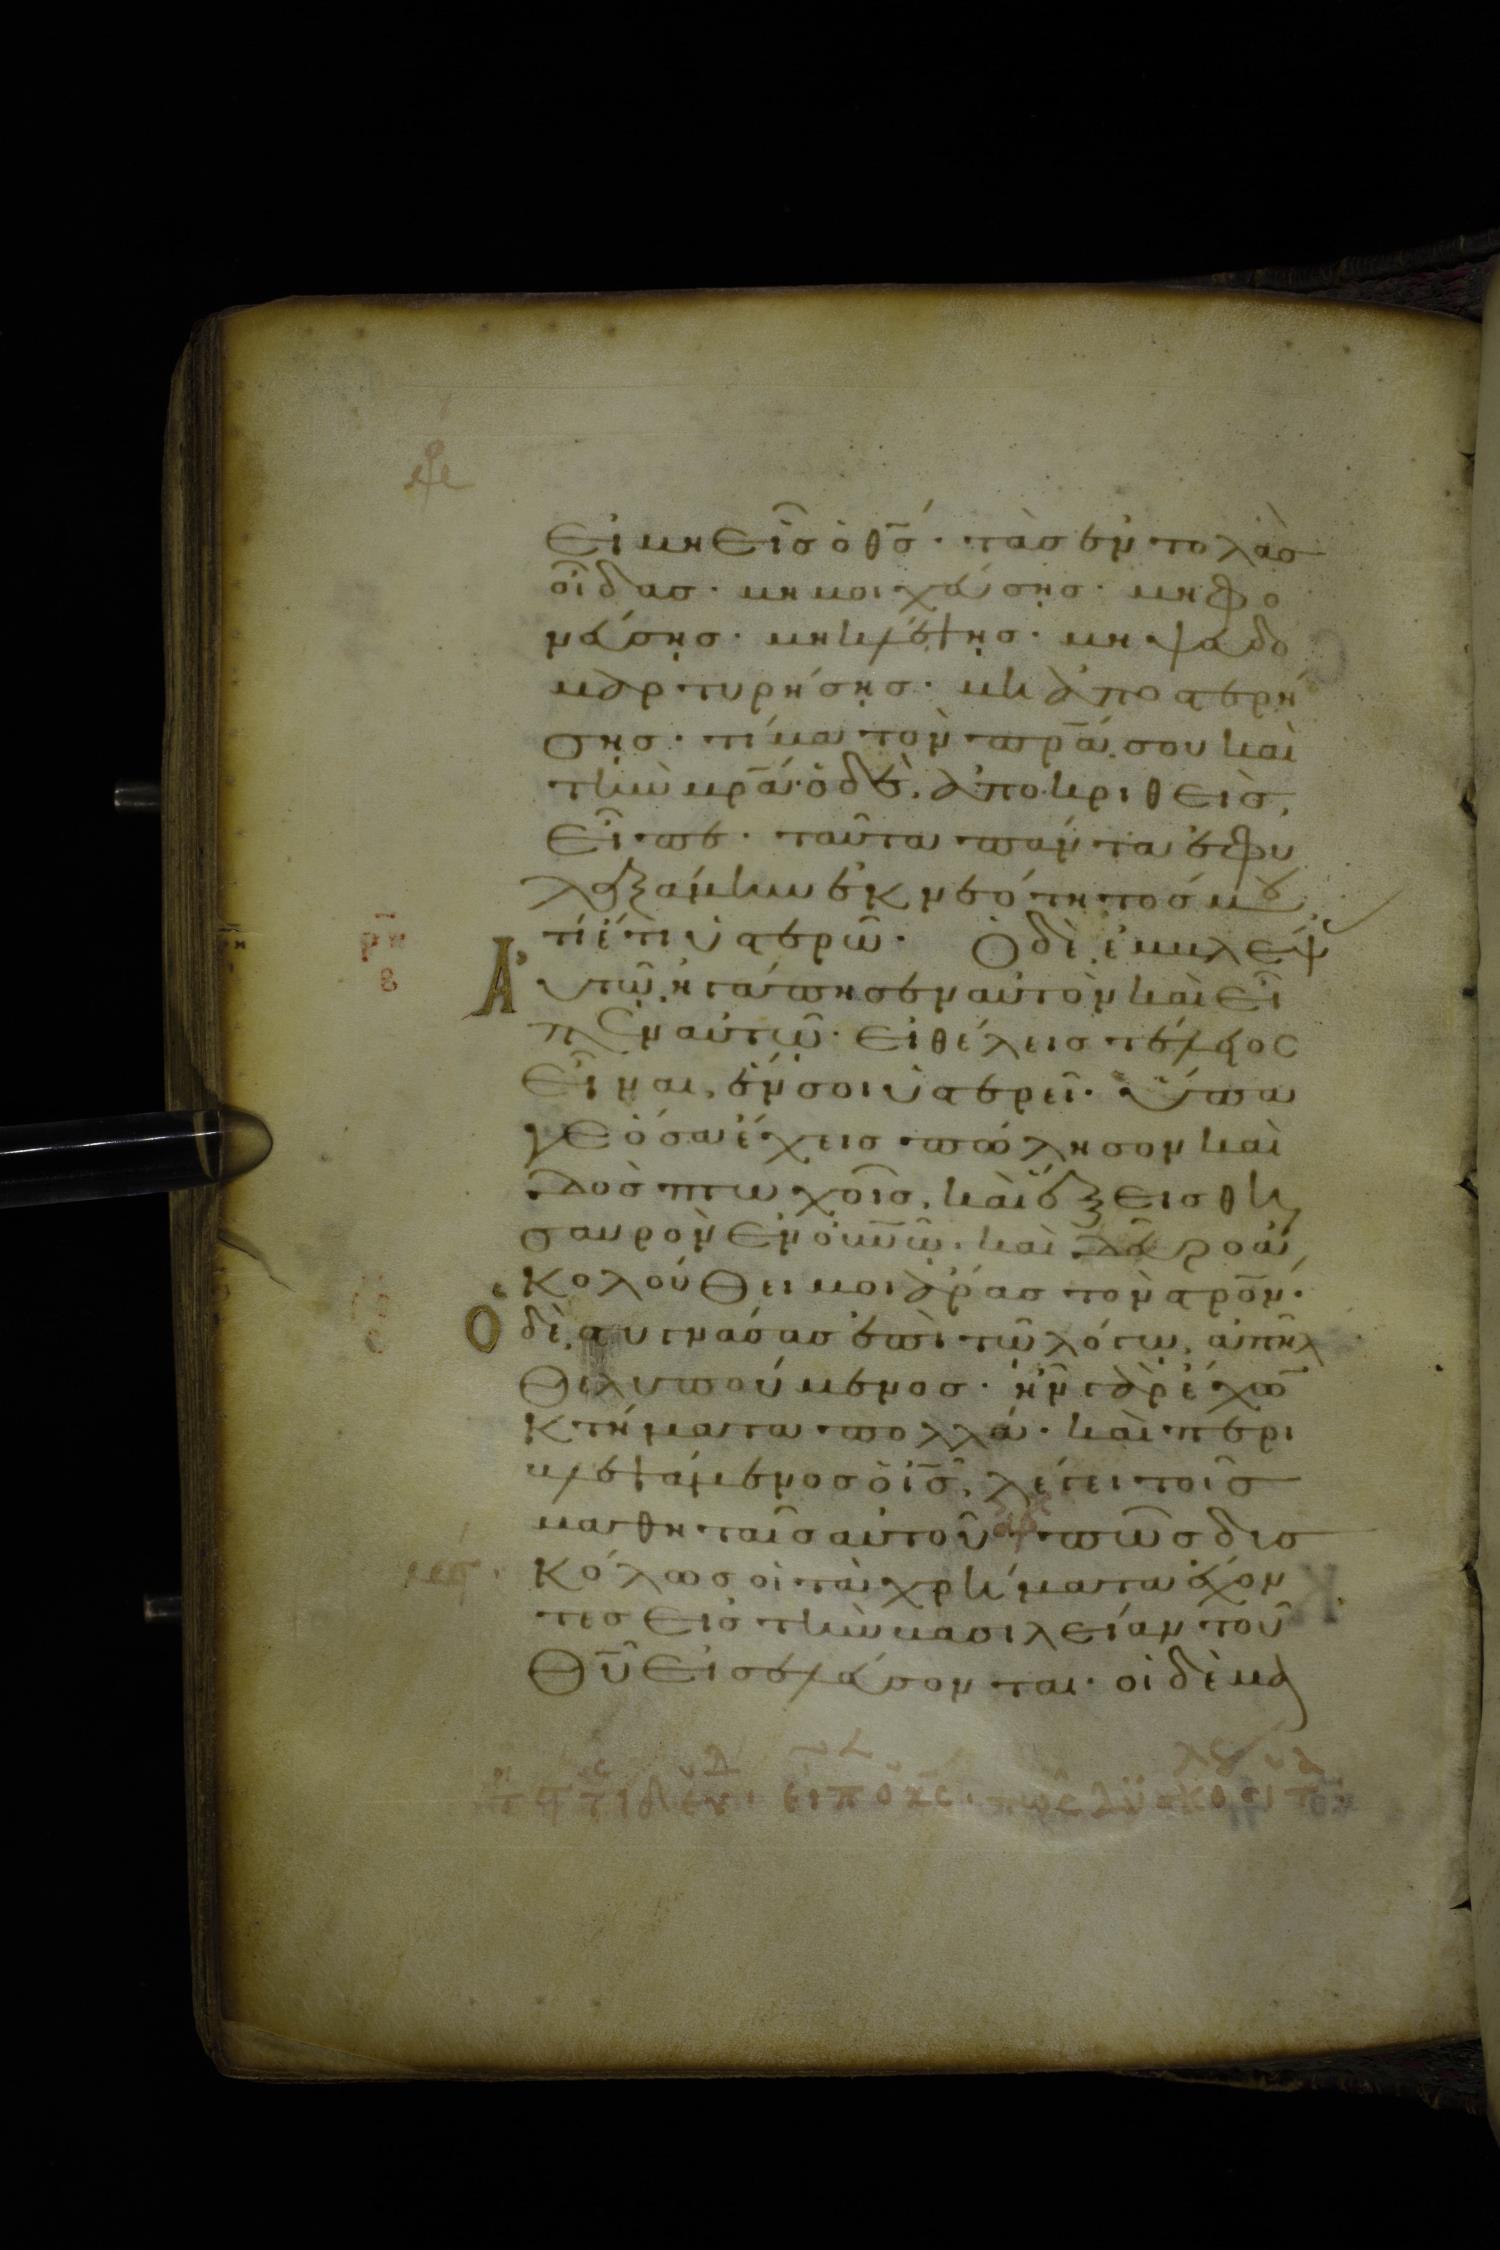 εἰ μὴ εἷς ὁ θς̄· τὰς ἐντολὰς
οἶδας· μὴ μοιχεύσης· μὴ φο
νεύσης· μὴ κλέψης· μὴ ψευδο
μαρτυρήσης· μὴ ἀποστερή
σης· τίμα τὸν πρ̄α σου καὶ
τὴν μρ̄α· ὁ δὲ ἀποκριθεὶς
εἶπε· ταῦτα πάντα ἐφυ
λαξάμην ἐκ νεότητός μου
τί ἔτι ὑστερῶ· Ὁ δὲ ἐμβλεψ
Αυτῶ ἠγάπησεν αὐτὸν καὶ εἶ
πεν αὐτῶ· εἰ θέλεις τέλειος
εἶναι, ἕν σοι ὑστερεῖ· ὕπα
γε ὅσα ἔχεις πώλησον καὶ
δὸς πτωχοῖς, καὶ ἕξεις θη
σαυρὸν ἐν οὐνῶ· καὶ δεῦρο ἀ
κολούθει μοι ἄρας τὸν στρον·
Ὁ δὲ στυγνάσας ἐπὶ τῶ λόγω, ἀπῆλ
θε λυπούμενος· ἦν γὰρ ἔχω
κτήματα πολλά· καὶ περι
βλεψάμενος ὁ ις̄, λέγει τοῖς
μαθηταῖς αὐτοῦ πῶς δυσ
κόλως οἱ τὰ χρήματα ἔχον
τες εἰς τὴν βασιλείαν τοῦ
θῡ εἰσελεύσονται· οἱ δὲ μα